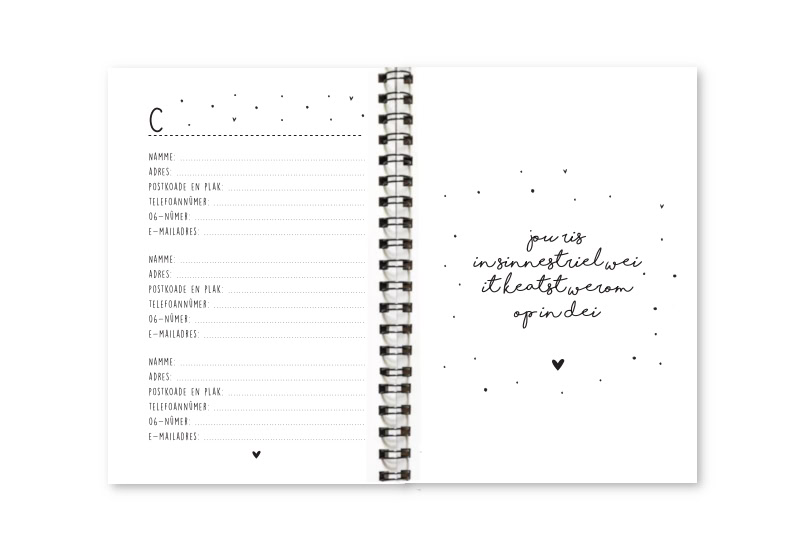 C
NAMME:
ADRES:
POSTKOADE EN PLAK:
TELEFOANNÛMER:
06-NÛMER:
E-MAILADRES:
NAMME:
ADRES:
POSTKOADE EN PLAK:
TELEFOANNÛMER:
06-NÛMER:
E-MAILADRES:
NAMME:
ADRES:
POSTKOADE EN PLAK:
TELEFOANNÛMER:
06-NÛMER:
E-MAILADRES:
jou ris
in sinnestriel wei
it keatst werom
op in dei